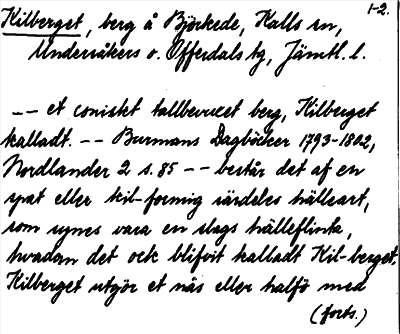 1-2.
Kilberget, berg å Björkede, Kalls sn,
Undersåkers o. Offerdals tg, Jämtl. l.
-- et coniskt tallbevuxet berg, Kilberget
kalladt. -- Burmans Dagböcker 1793-1802,
Nordlander 2 s. 85 -- består det af en
spat eller kil-formig särdeles hälleart,
som synes vara en slags hälleflinta,
hvadan det ock blifvit kalladt Kil-berget.
Kilberget utgör et näs eller halfö med
(forts.)